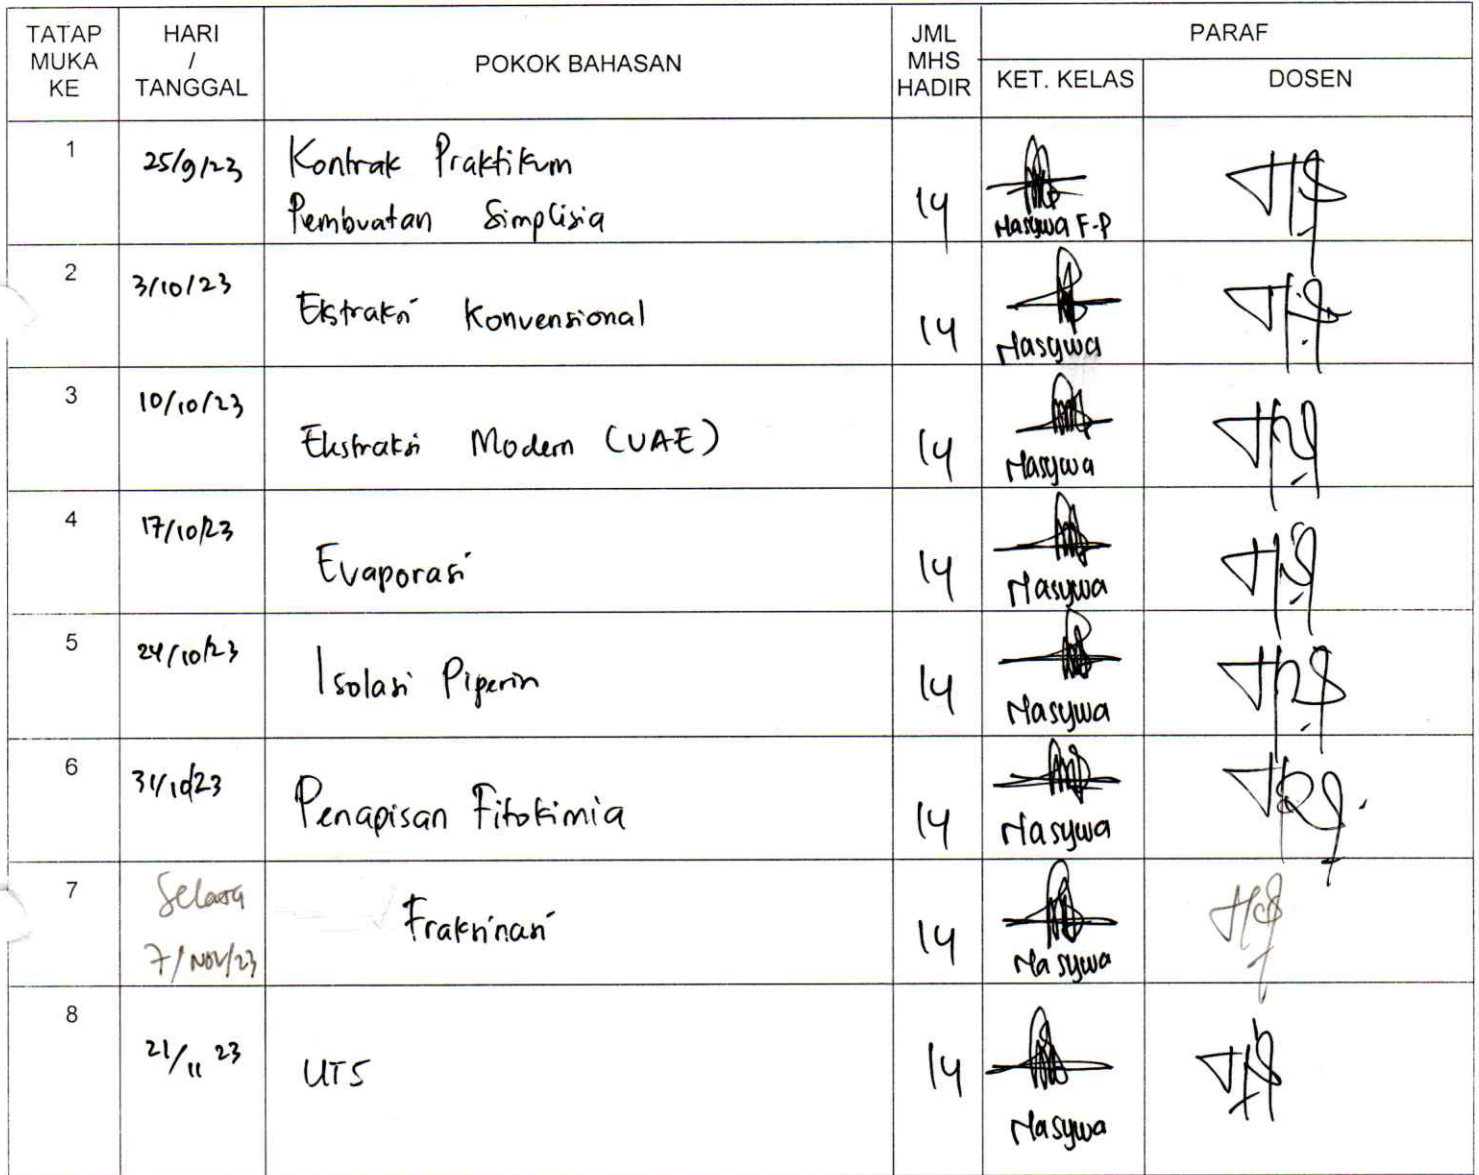 TATAP MUKA KE
HARI / TANGGAL
POKOK BAHASAN
JML MHS HADIR
PARAF
KET. KELAS
DOSEN
1
25/9/23
Kontrak Praktikum
Pembuatan Simplisia
14
Nasywa F.P
2
3/10/23
Ekstraksi Konvensional
14
Nasywa
3
10/10/23
Ekstraksi Modern (UAE)
14
Nasywa
4
17/10/23
Evaporasi
14
Nasywa
5
24/10/23
Isolasi Piperin
14
Nasywa
6
31/10/23
Penapisan Fitokimia
14
Nasywa
7
Selasa
7/Nov/23
Fraksinasi
14
Nasywa
8
21/11 23
UTS
14
Nasywa